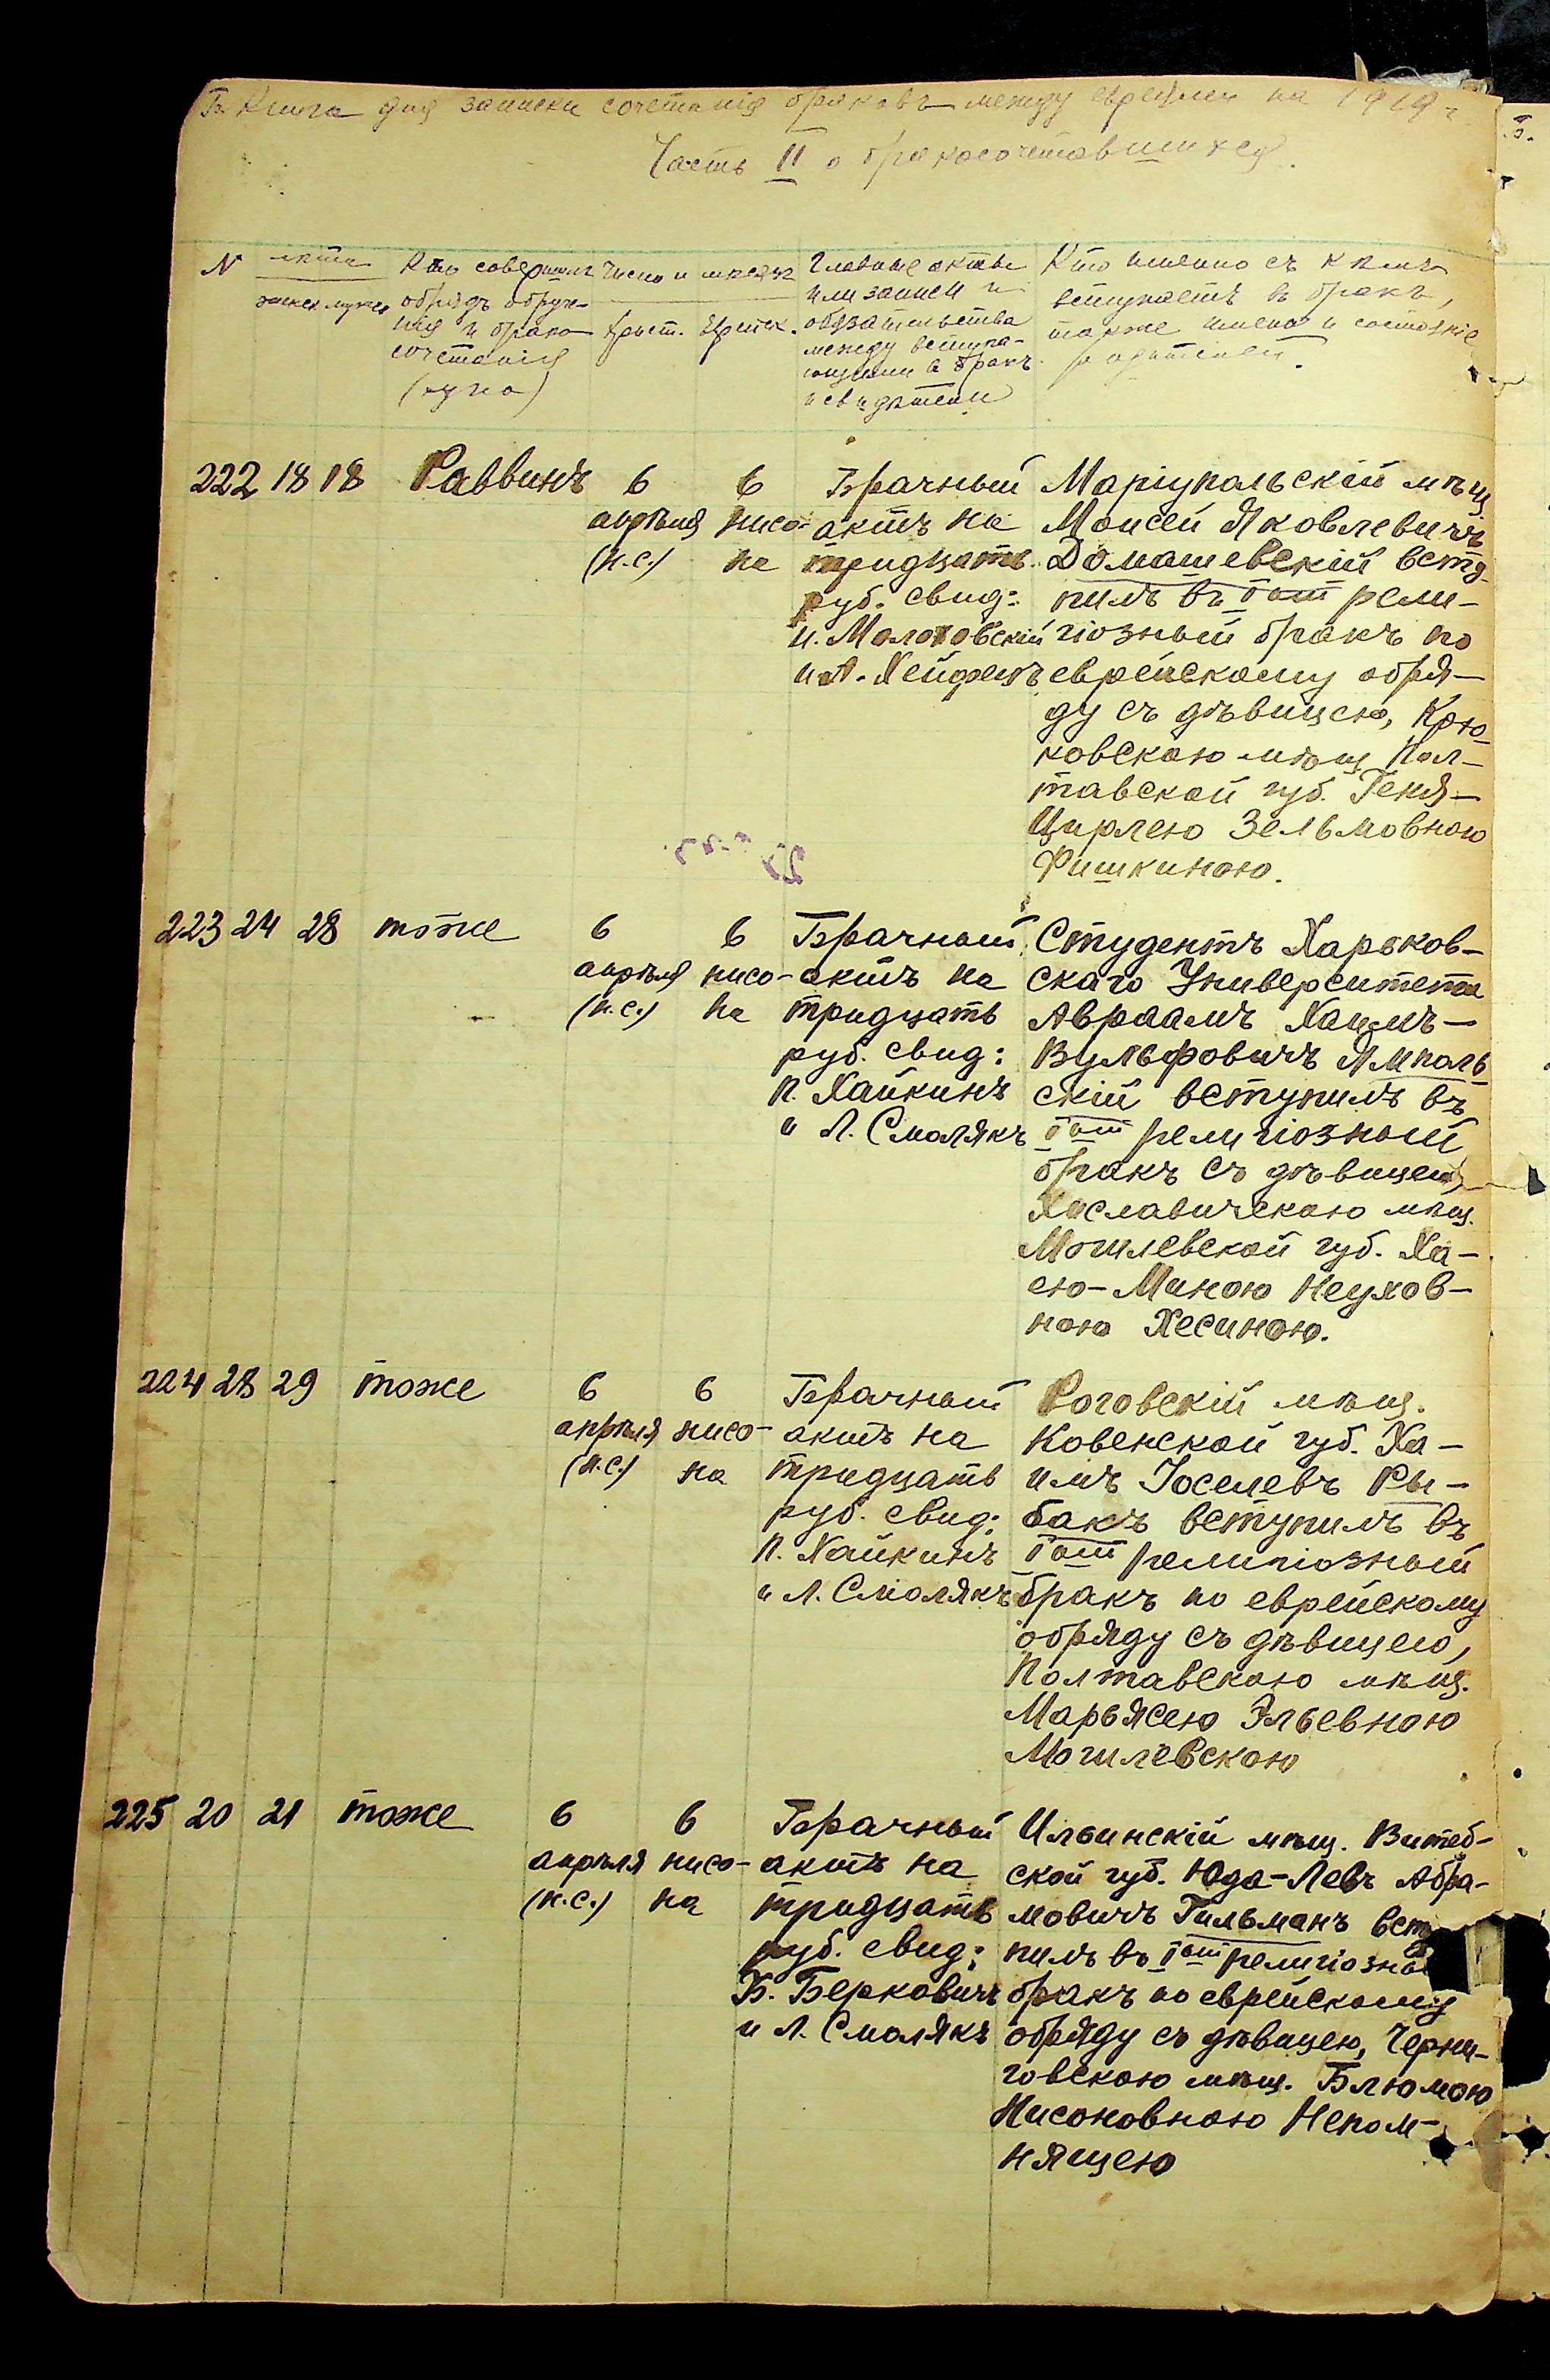 Книга для записки сочетанія браковъ между евреями на 1919 г
Часть II о бракосочетавшихся.
N
лѣта
женск. мужск
Кто совершилъ
обрядъ обруче-
нія и брако
сочетанія
Число и мѣсяцъ
Христ. Еврейск.
Главные акты
или записи и
обязательства
между вступа-
ющими в бракъ
и свидѣтели
Кто именно съ кѣмъ
вступаетъ въ бракъ,
также имена и состояніе
родителей.
222 18 18 Раввинъ
6
апрѣля
(н.с.)
6
ниса-
на
Брачный
актъ на
тридцать
руб. свид:
и. Молотовскій
и А. Хейфецъ
Маріупольскій мѣщ
Моисей Яковлевичъ
Домашевскій всту-
пилъ въ Iый рели-
гіозный бракъ по
еврейскому обря-
ду съ дѣвицею, Крю-
ковскою мѣщ Пол-
тавской губ. Геня-
Цирлею Зельмовною
Фишкиною.
223 24 28 тоже
6
апрѣля
(н.с.)
6
ниса-
на
Брачный
актъ на
тридцать
руб. свид:
П. Хайкинъ
и Л. Смолякъ
Студентъ Харьков-
скаго Университета
Авраамъ Хаимъ-
Вульфовичъ Ямполь-
скій вступилъ въ
Iый религіозный
бракъ съ дѣвицею,
Хиславичскою мѣщ.
Могилевской губ. Ха-
ею-Миною Неухов-
ною Хесиною.
224 28 29 тоже
6
апрѣля
(н.с.)
6
ниса-
на
Брачный
актъ на
тридцать
руб. свид:
П. Хайкинъ
и Л. Смолякъ
Роговскій мѣщ.
Ковенской губ. Ха-
имъ Іоселевъ Ры-
бакъ вступилъ въ
Iый религіозный
бракъ по еврейскому
обряду съ дѣвицею,
Полтавскою мѣщ.
Марьясею Эльевною
Могилевскою
225 20 21 тоже
6
апрѣля
(н.с.)
6
ниса-
на
Брачный
актъ на
тридцать
руб. свид:
Б. Берковичъ
и Л. Смолякъ
Ильинскій мѣщ. Витеб-
ской губ. Юда-Левъ Абра-
мовичъ Гильманъ всту
пилъ въ Iый религіозны
бракъ по еврейскому
обряду съ дѣвицею, Черни-
говскою мѣщ. Блюмою
Нисоновною Непом-
нящею